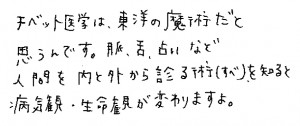 チベット医学は、東洋の魔術だと
思うんです。脈、舌、占いなど
人間を内と外から診る術(すべ)を知ると
病気観・生命観が変わりますよ。